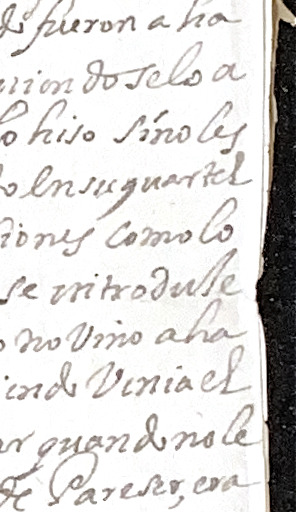 de fueron a ha
iendoselo a
lo hiso sino les
o en su quartel
iones como lo
se introduse
o no vino a ha
iende venia el
ar quando no le
de Pareser, era